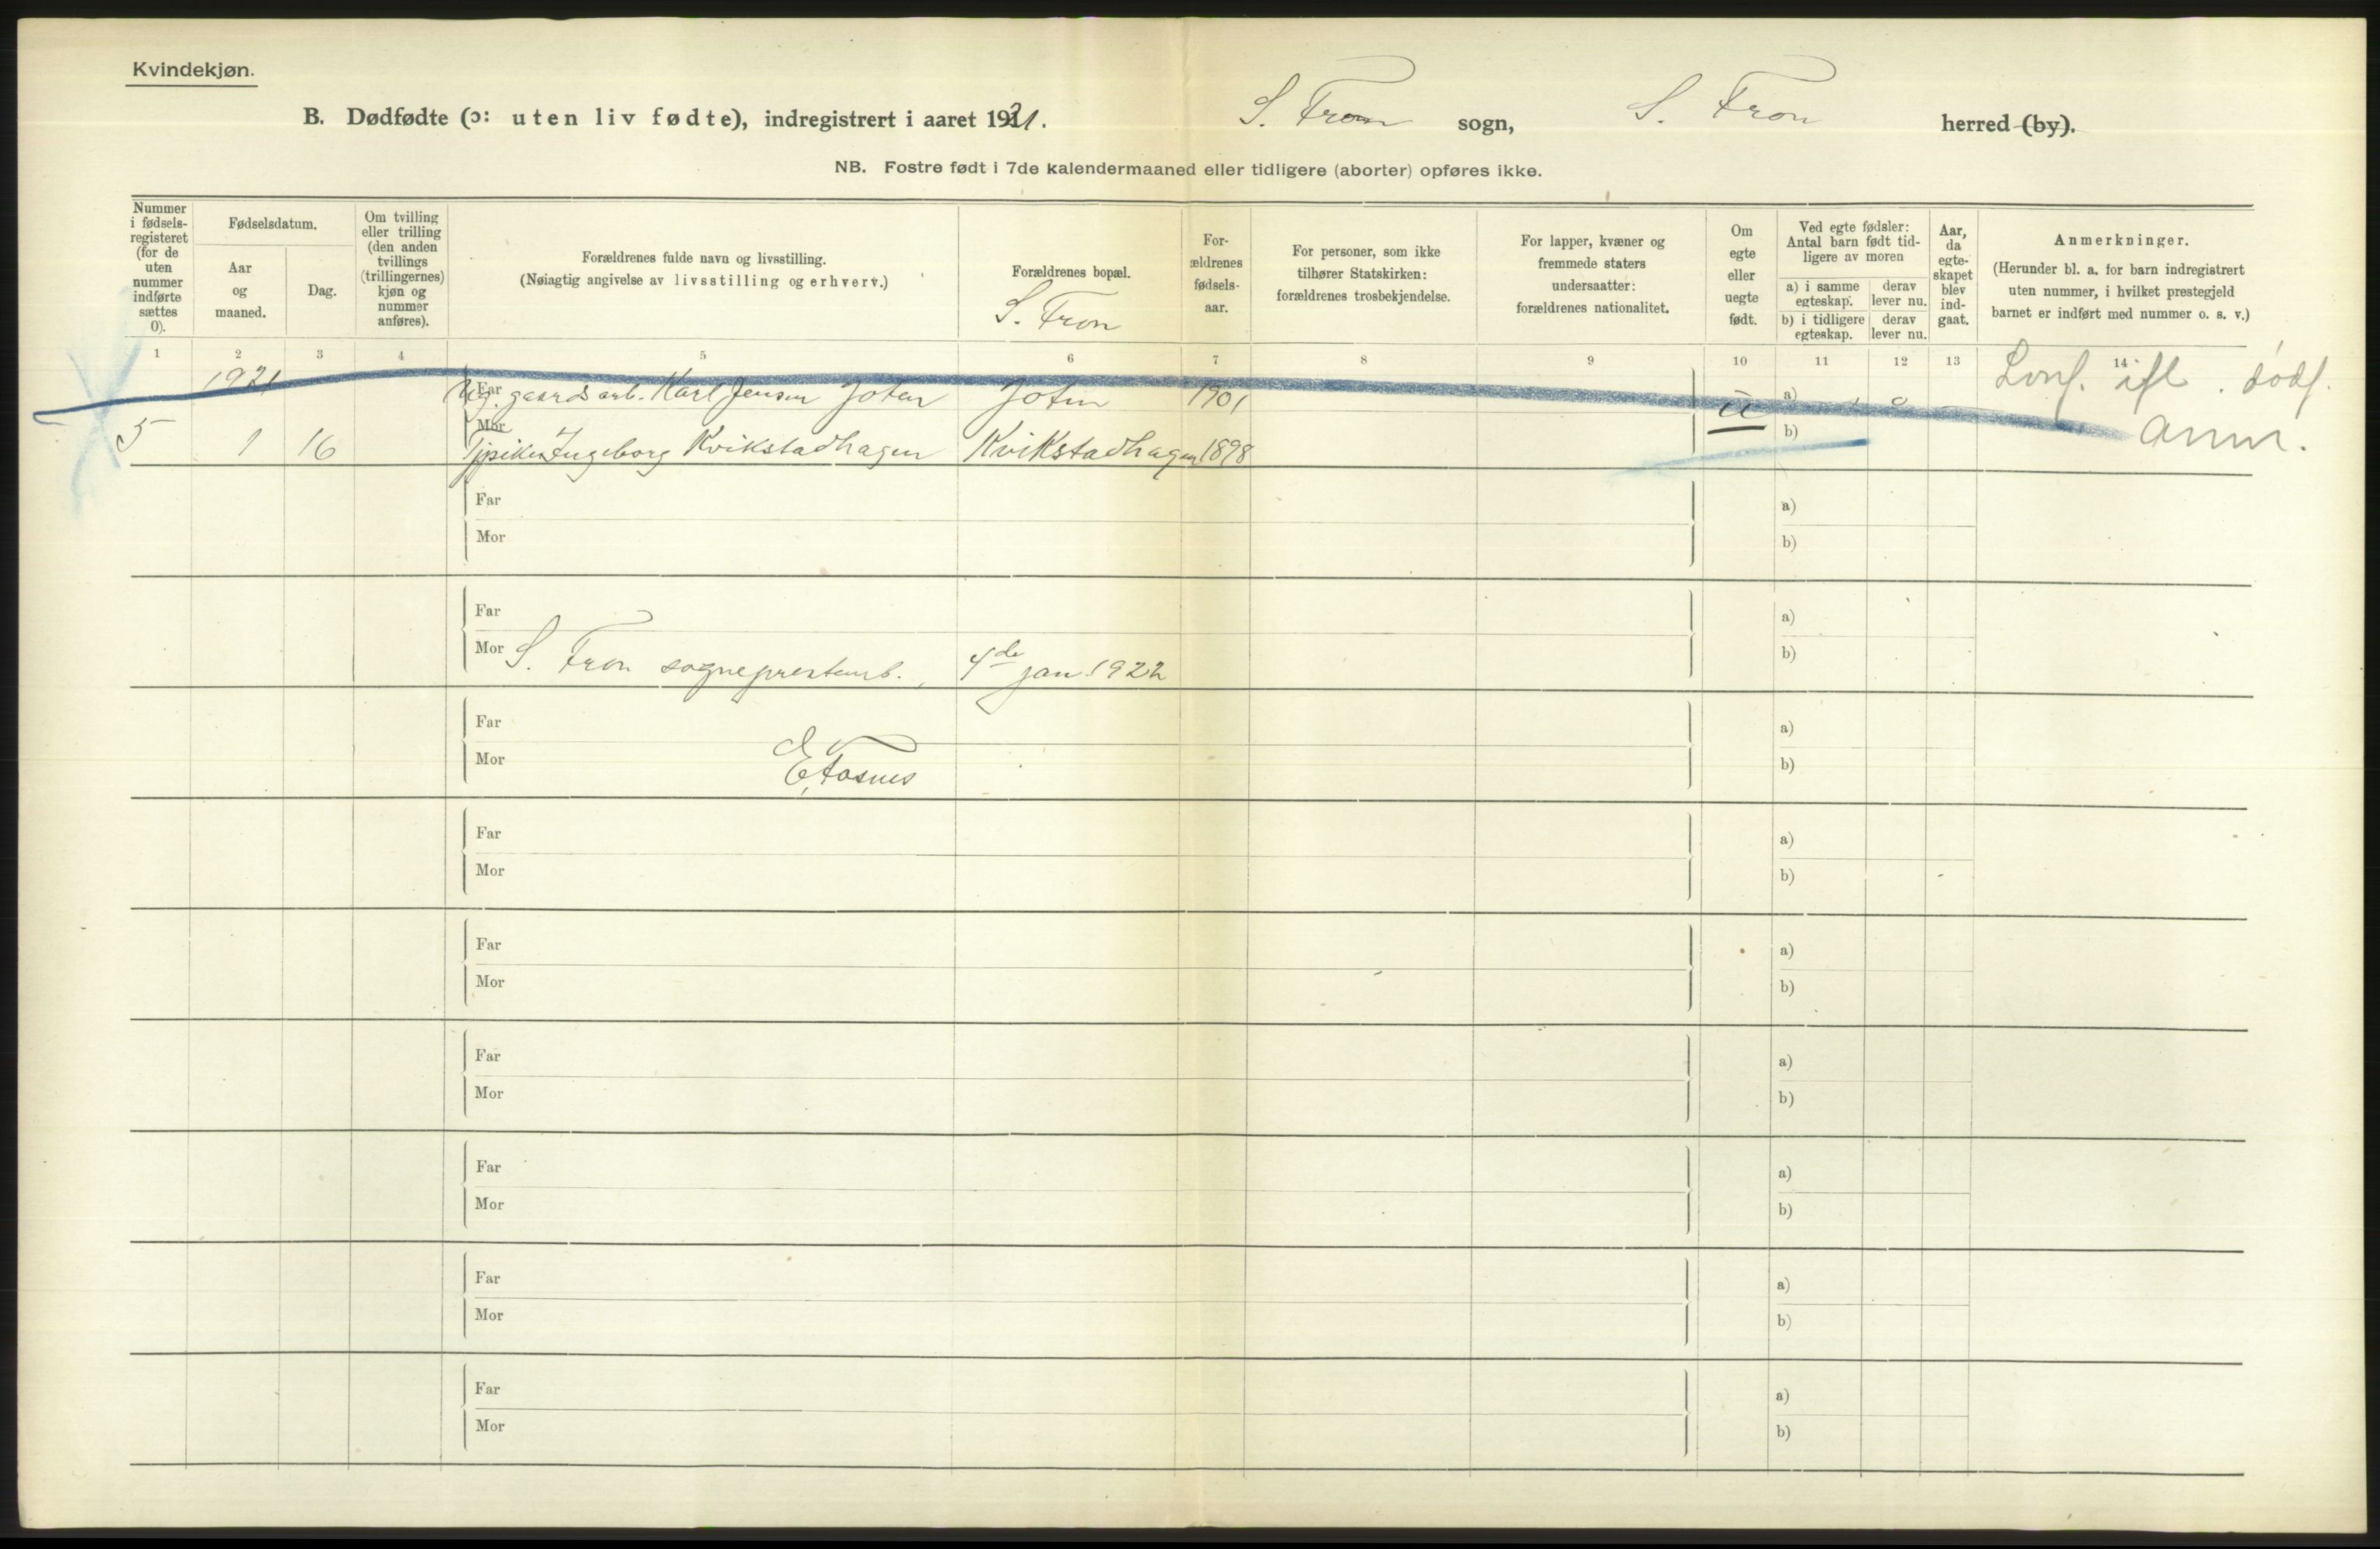 Kvindekjøn.
B. Dødfødte (ɔ: uten liv fødte), indregistrert i aaret 1921. S. Fron sogn, S. Fron herred (by).
NB. Fostre født i 7de kalendermaaned eller tidligere (aborter) opføres ikke.
Nummer
i fødsels-
registeret
(for de
uten
nummer
indførte
sættes
0).
Fødselsdatum.
Aar
og
maaned.
Dag.
Om tvilling
eller trilling
(den anden
tvillings
(trillingernes)
kjøn og
nummer
anføres).
Forældrenes fulde navn og livsstilling.
(Nøiagtig angivelse av livsstilling og erhverv.)
Forældrenes bopæl.
S. Fron
For-
ældrenes
fødsels-
aar.
For personer, som ikke
tilhører Statskirken:
forældrenes trosbekjendelse.
For lapper, kvæner og
fremmede staters
undersaatter:
forældrenes nationalitet.
Om
egte
eller
uegte
født.
Ved egte fødsler:
Antal barn født tid-
ligere av moren
a) i samme
egteskap.
derav
lever nu.
b) i tidligere
egteskap.
derav
lever nu.
Aar,
da
egte-
skapet
blev
ind-
gaat.
Anmerkninger.
(Herunder bl. a. for barn indregistrert
uten nummer, i hvilket prestegjeld
barnet er indført med nummer o. s. v.)
1 2 3 4 5 6 7 8 9 10 11 12 13 14
1921 Far Ug. gaardsarb. Karl Jensen Joten Joten 1901 u a)
5 1 16 Mor Tjpike Ingeborg Kvikstadhagen Kvikstadhagen 1898 b)
dødf.
anm.
Far a)
Mor b)
Far a)
Mor S. Fron sogneprestemb., 4de jan. 1922 b)
Far a)
Mor b)
Far a)
Mor b)
Far a)
Mor b)
Far a)
Mor b)
Far a)
Mor b)
Far a)
Mor b)
Far a)
Mor b)